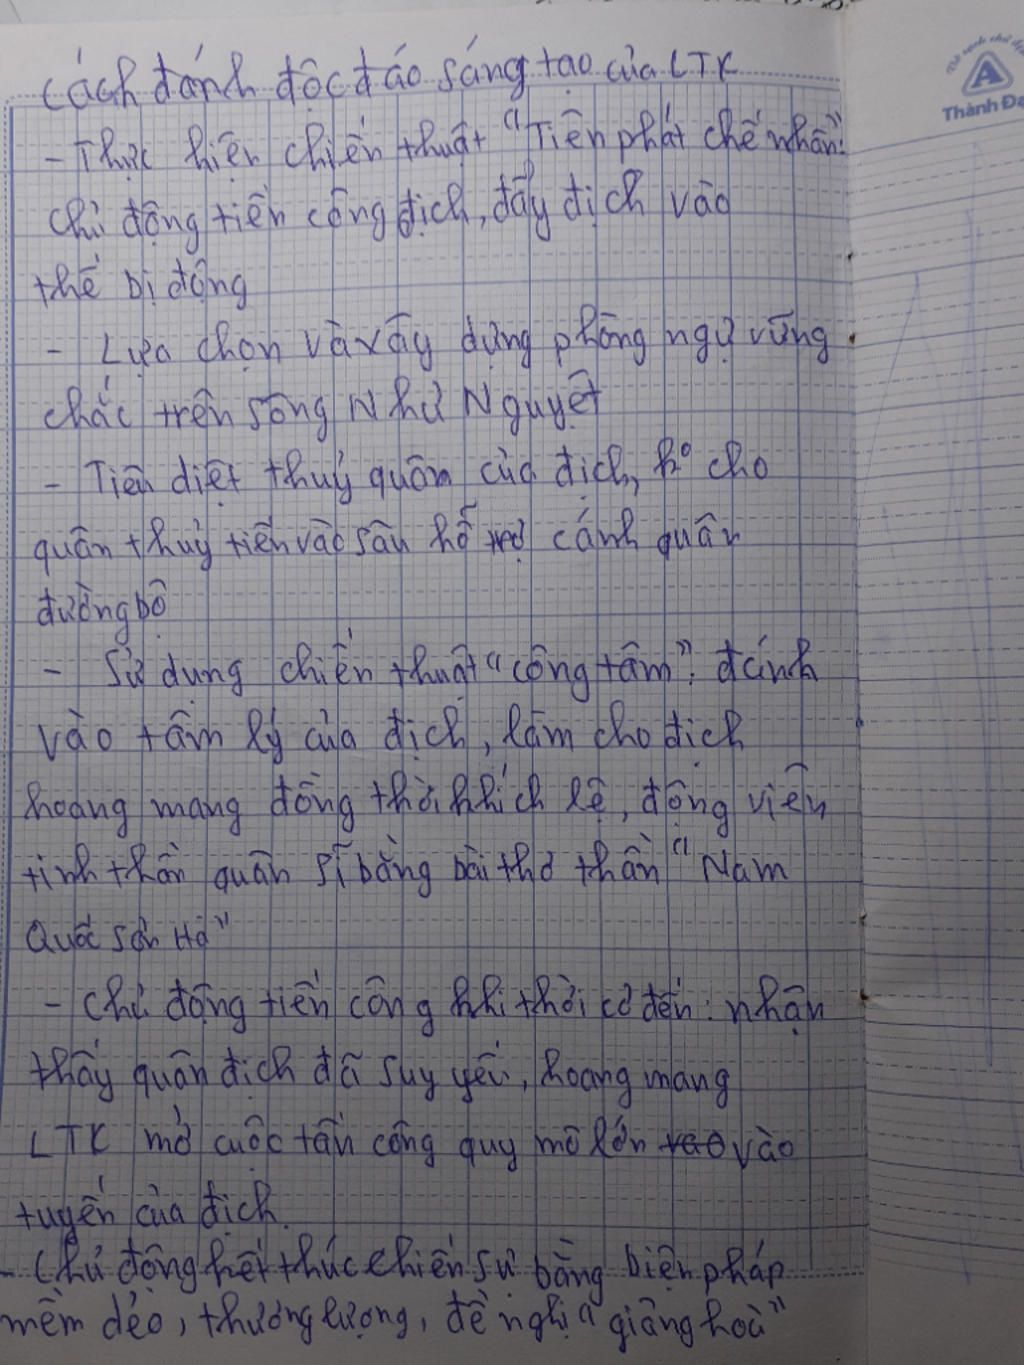 Cách đánh độc đáo sáng tạo của LTK
- Thực hiện chiến thuật "Tiên phát chế nhân":
Chủ động tiến công địch, đẩy địch vào
thế bị động
- Lựa chọn và xây dựng phòng ngự vững
chắc trên sông Như Nguyệt
- Tiêu diệt thuỷ quân của địch, ko cho
quân thuỷ tiến vào sâu hỗ trợ cánh quân
đường bộ
- Sử dụng chiến thuật "công tâm": đánh
vào tâm lý của địch, làm cho địch
hoang mang đồng thời khích lệ, động viên
tinh thần quân sĩ bằng bài thơ thần "Nam
Quốc Sơn Hà"
- Chủ động tiến công khi thời cơ đến: nhận
thấy quân địch đã suy yếu, hoang mang
LTK mở cuộc tấn công quy mô lớn vào
tuyến của địch.
- Chủ động kết thúc chiến sự bằng biện pháp
mềm dẻo, thương lượng, đề nghị "giảng hoà"
Thành Đạ